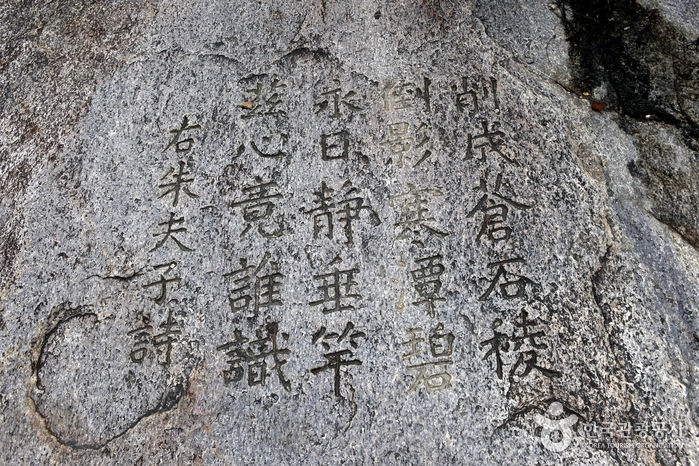 削成蒼石稜
倒影寒潭碧
永日静垂竿
玆心竟誰識
右朱夫子詩
한국관광공사
KOREA TOURISM ORGANIZATION